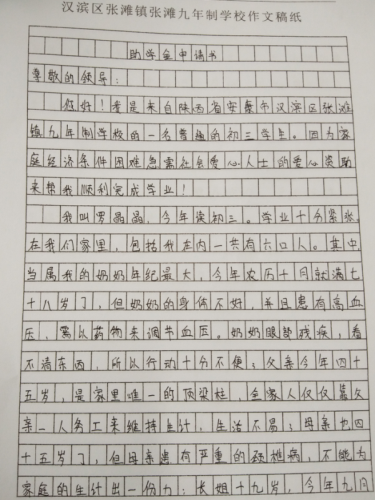 汉滨区张滩镇张滩九年制学校作文稿纸
助学金申请书
尊敬的领导：
您好！我是来自陕西省安康市汉滨区张滩
镇九年制学校的一名普通的初三学生。因为家
庭经济条件困难急需社会爱心人士的爱心资助
来帮我顺利完成学业！
我叫罗晶晶，今年读初三。学业十分紧张。
在我们家里，包括我在内一共有六口人。其中
当属我的奶奶年纪最大，今年农历十月就满七
十八岁了，但奶奶的身体不好，并且患有高血
压，需以药物来调节血压。奶奶眼睛残疾，看
不清东西，所以行动十分不便；父亲今年四十
五岁，是家里唯一的顶梁柱，全家人仅仅靠父
亲一人务工来维持生计，生活不易；母亲也四
十五岁了，但母亲患有严重的颈椎病，不能为
家庭的生计出一份力；长姐十九岁，今年九月